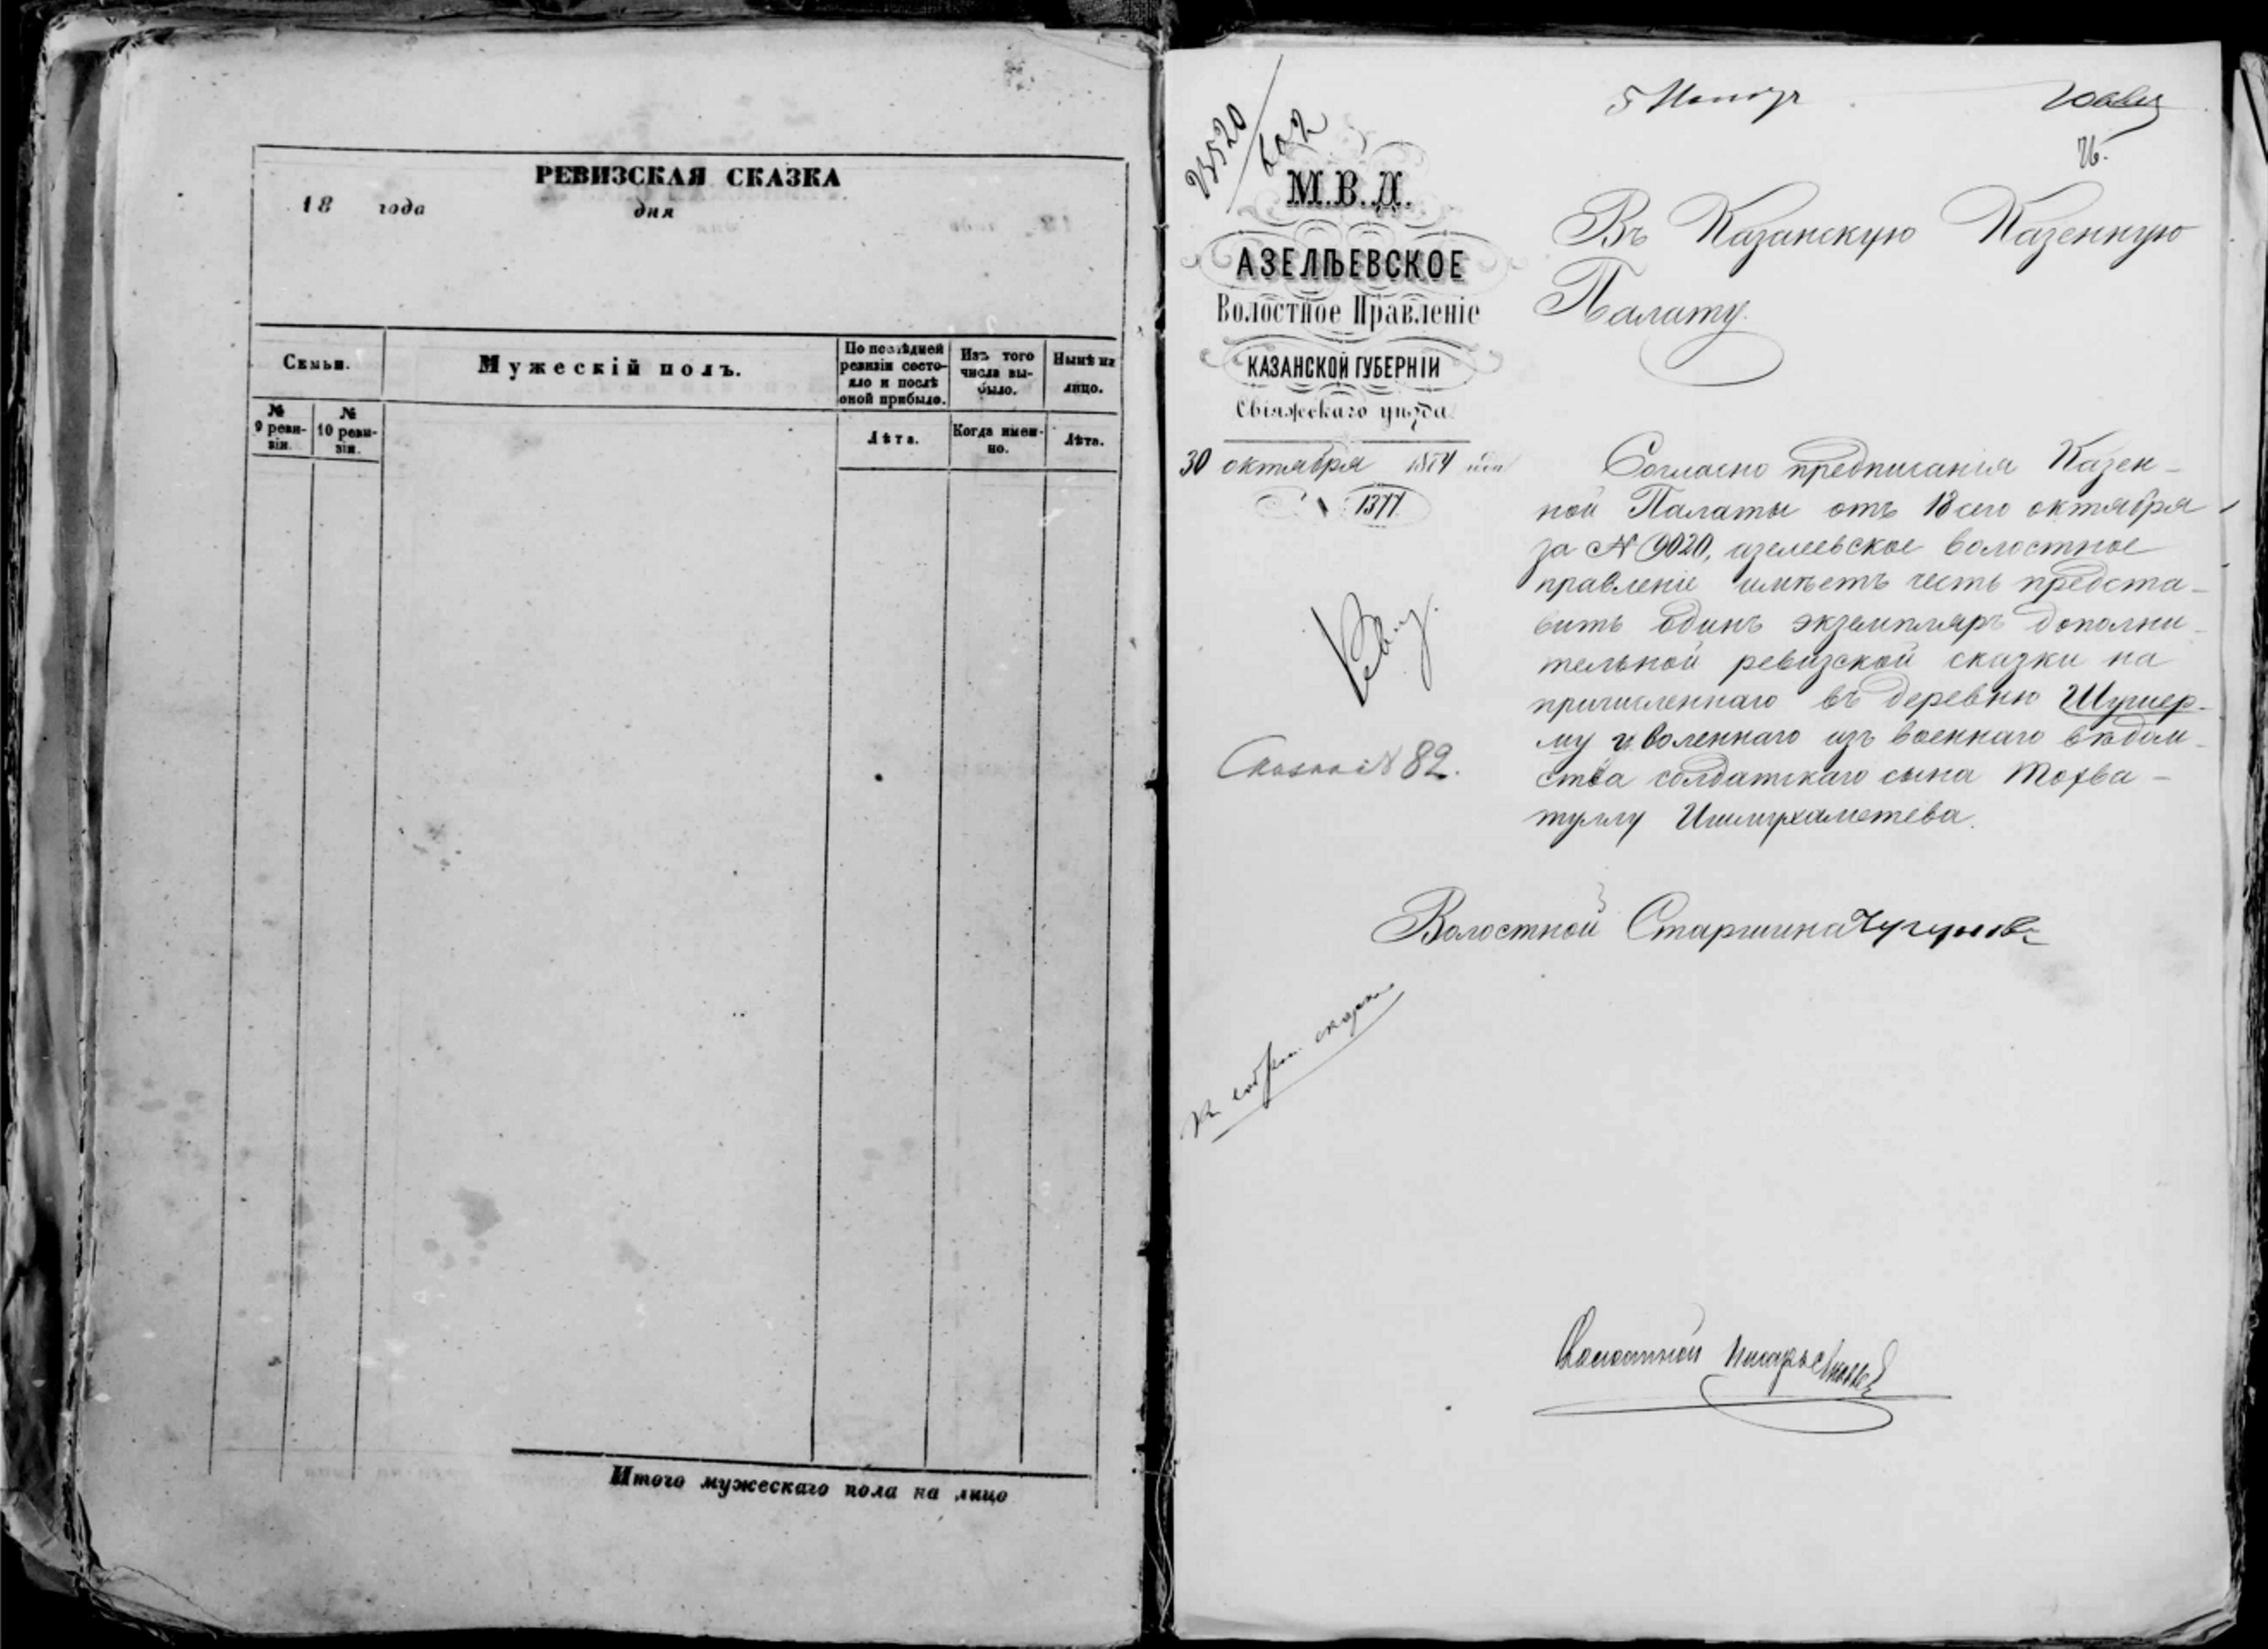 РЕВИЗСКАЯ СКАЗКА
18 года дня
Семьи.
Мужескій полъ.
По послѣдней ревизіи состояло и послѣ оной прибыло.
Изъ того числа выбыло.
Нынѣ на лицо.
№ 9 ревизіи.
№ 10 ревизіи.
Лѣта.
Когда именно.
Лѣта.
Итого мужескаго пола на лицо
5 Ноябр
76.
М.В.Д.
АЗЕЛѢЕВСКОЕ
Волостное Правленіе
КАЗАНСКОЙ ГУБЕРНІИ
Свіяжскаго уѣзда.
30 октября 1874 года
1377
Въ Казанскую Казенную
Палату.
Согласно предписанія Казен-
ной Палаты отъ 18 сего октября
за № 9020, азелеевское волостное
правленіе имѣетъ честь предста-
вить одинъ экземпляръ дополни-
тельной ревизской сказки на
причисленнаго въ деревню Шушер-
му уволеннаго изъ военнаго вѣдом-
ства солдатскаго сына Тохва-
туллу Ишмухаметева.
№ 82.
Волостной Старшина Чугуновъ
Волостной Писарь